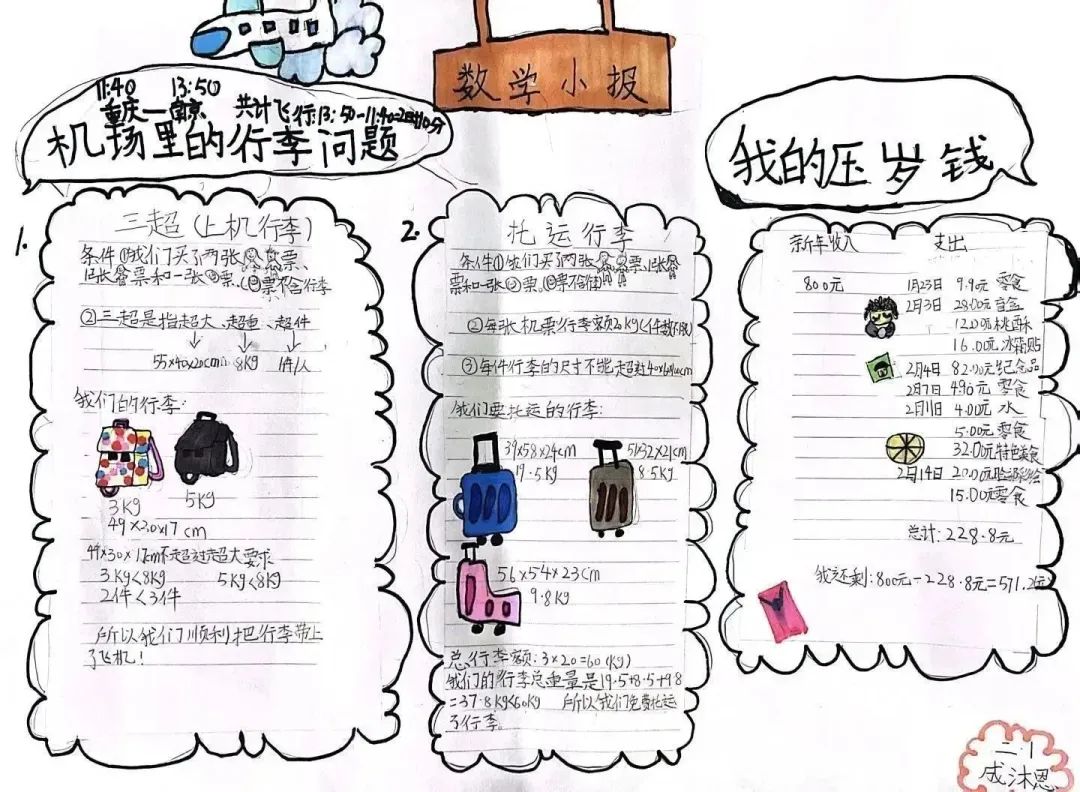 数学小报
11:40 13:50
重庆—南京 共计飞行:13:50-11:40=2时10分
机场里的行李问题
1.
三超(上机行李)
条件①我们买了两张票、
1张票和一张票、(票不含行李
②三超是指超大、超重、超件
55×40×20cm 8Kg 1件/人
我们的行李:
3Kg 5Kg
49×30×17cm
49×30×17cm不超过超大要求
3Kg<8Kg 5Kg<8Kg
2件<3件
所以我们顺利把行李带上
了飞机!
2.
托运行李
条件①我们买了两张票、1张
票和一张票、票不含
②每张机票行李额20Kg(件数不限)
③每件行李的尺寸不能超过40×60×100cm
我们要托运的行李:
39×58×24cm
19.5Kg
51×32×21cm
8.5Kg
56×54×23cm
9.8Kg
总行李额:3×20=60(Kg)
我们的行李总重量是19.5+8.5+9.8
=37.8Kg<60Kg 所以我们免费托运
了行李。
我的压岁钱
新年收入 支出
800元 1月23日 9.9元 零食
2月3日 28.00元 盲盒
12.00元 桃酥
16.00元 冰箱贴
2月4日 82.00元 纪念品
2月7日 4.90元 零食
2月11日 4.00元 水
5.00元 零食
32.00元 特色美食
2月14日 20.00元
15.00元 零食
总计:228.8元
我还剩:800元-228.8元=571.2(元)
二1
成沐恩